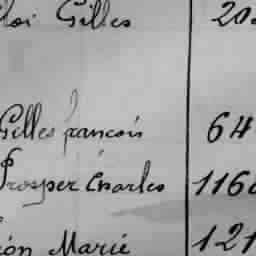 loi Gilles 202
Gilles francois 64
Prosper Charles 1166
éon Marie 121